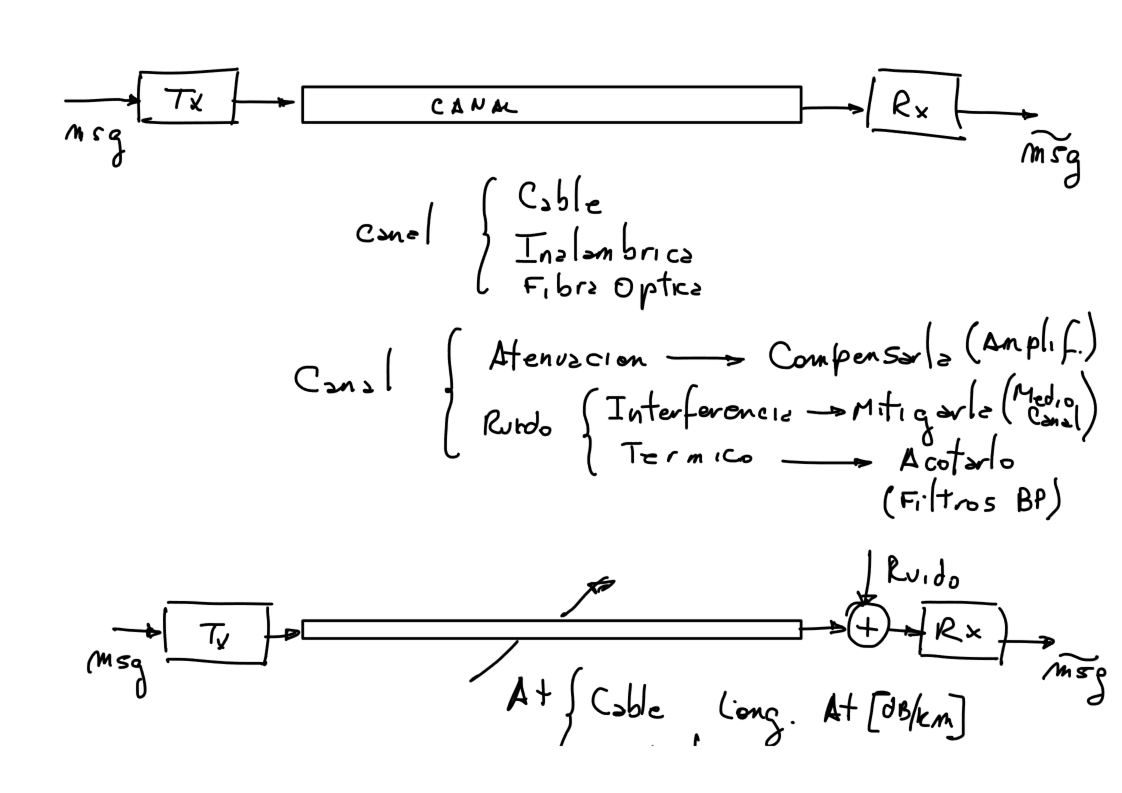 Tx
CANAL
Rx
msg
m̃sg
Canal
Cable
Inalambrica
Fibra Optica
Canal
Atenuacion → Compensarla (Amplif.)
Ruido
Interferencia → Mitigarla (Medio Canal)
Termico → Acotarlo
(Filtros BP)
Ruido
Tx
+
Rx
msg
m̃sg
At
Cable Long. At [dB/km]